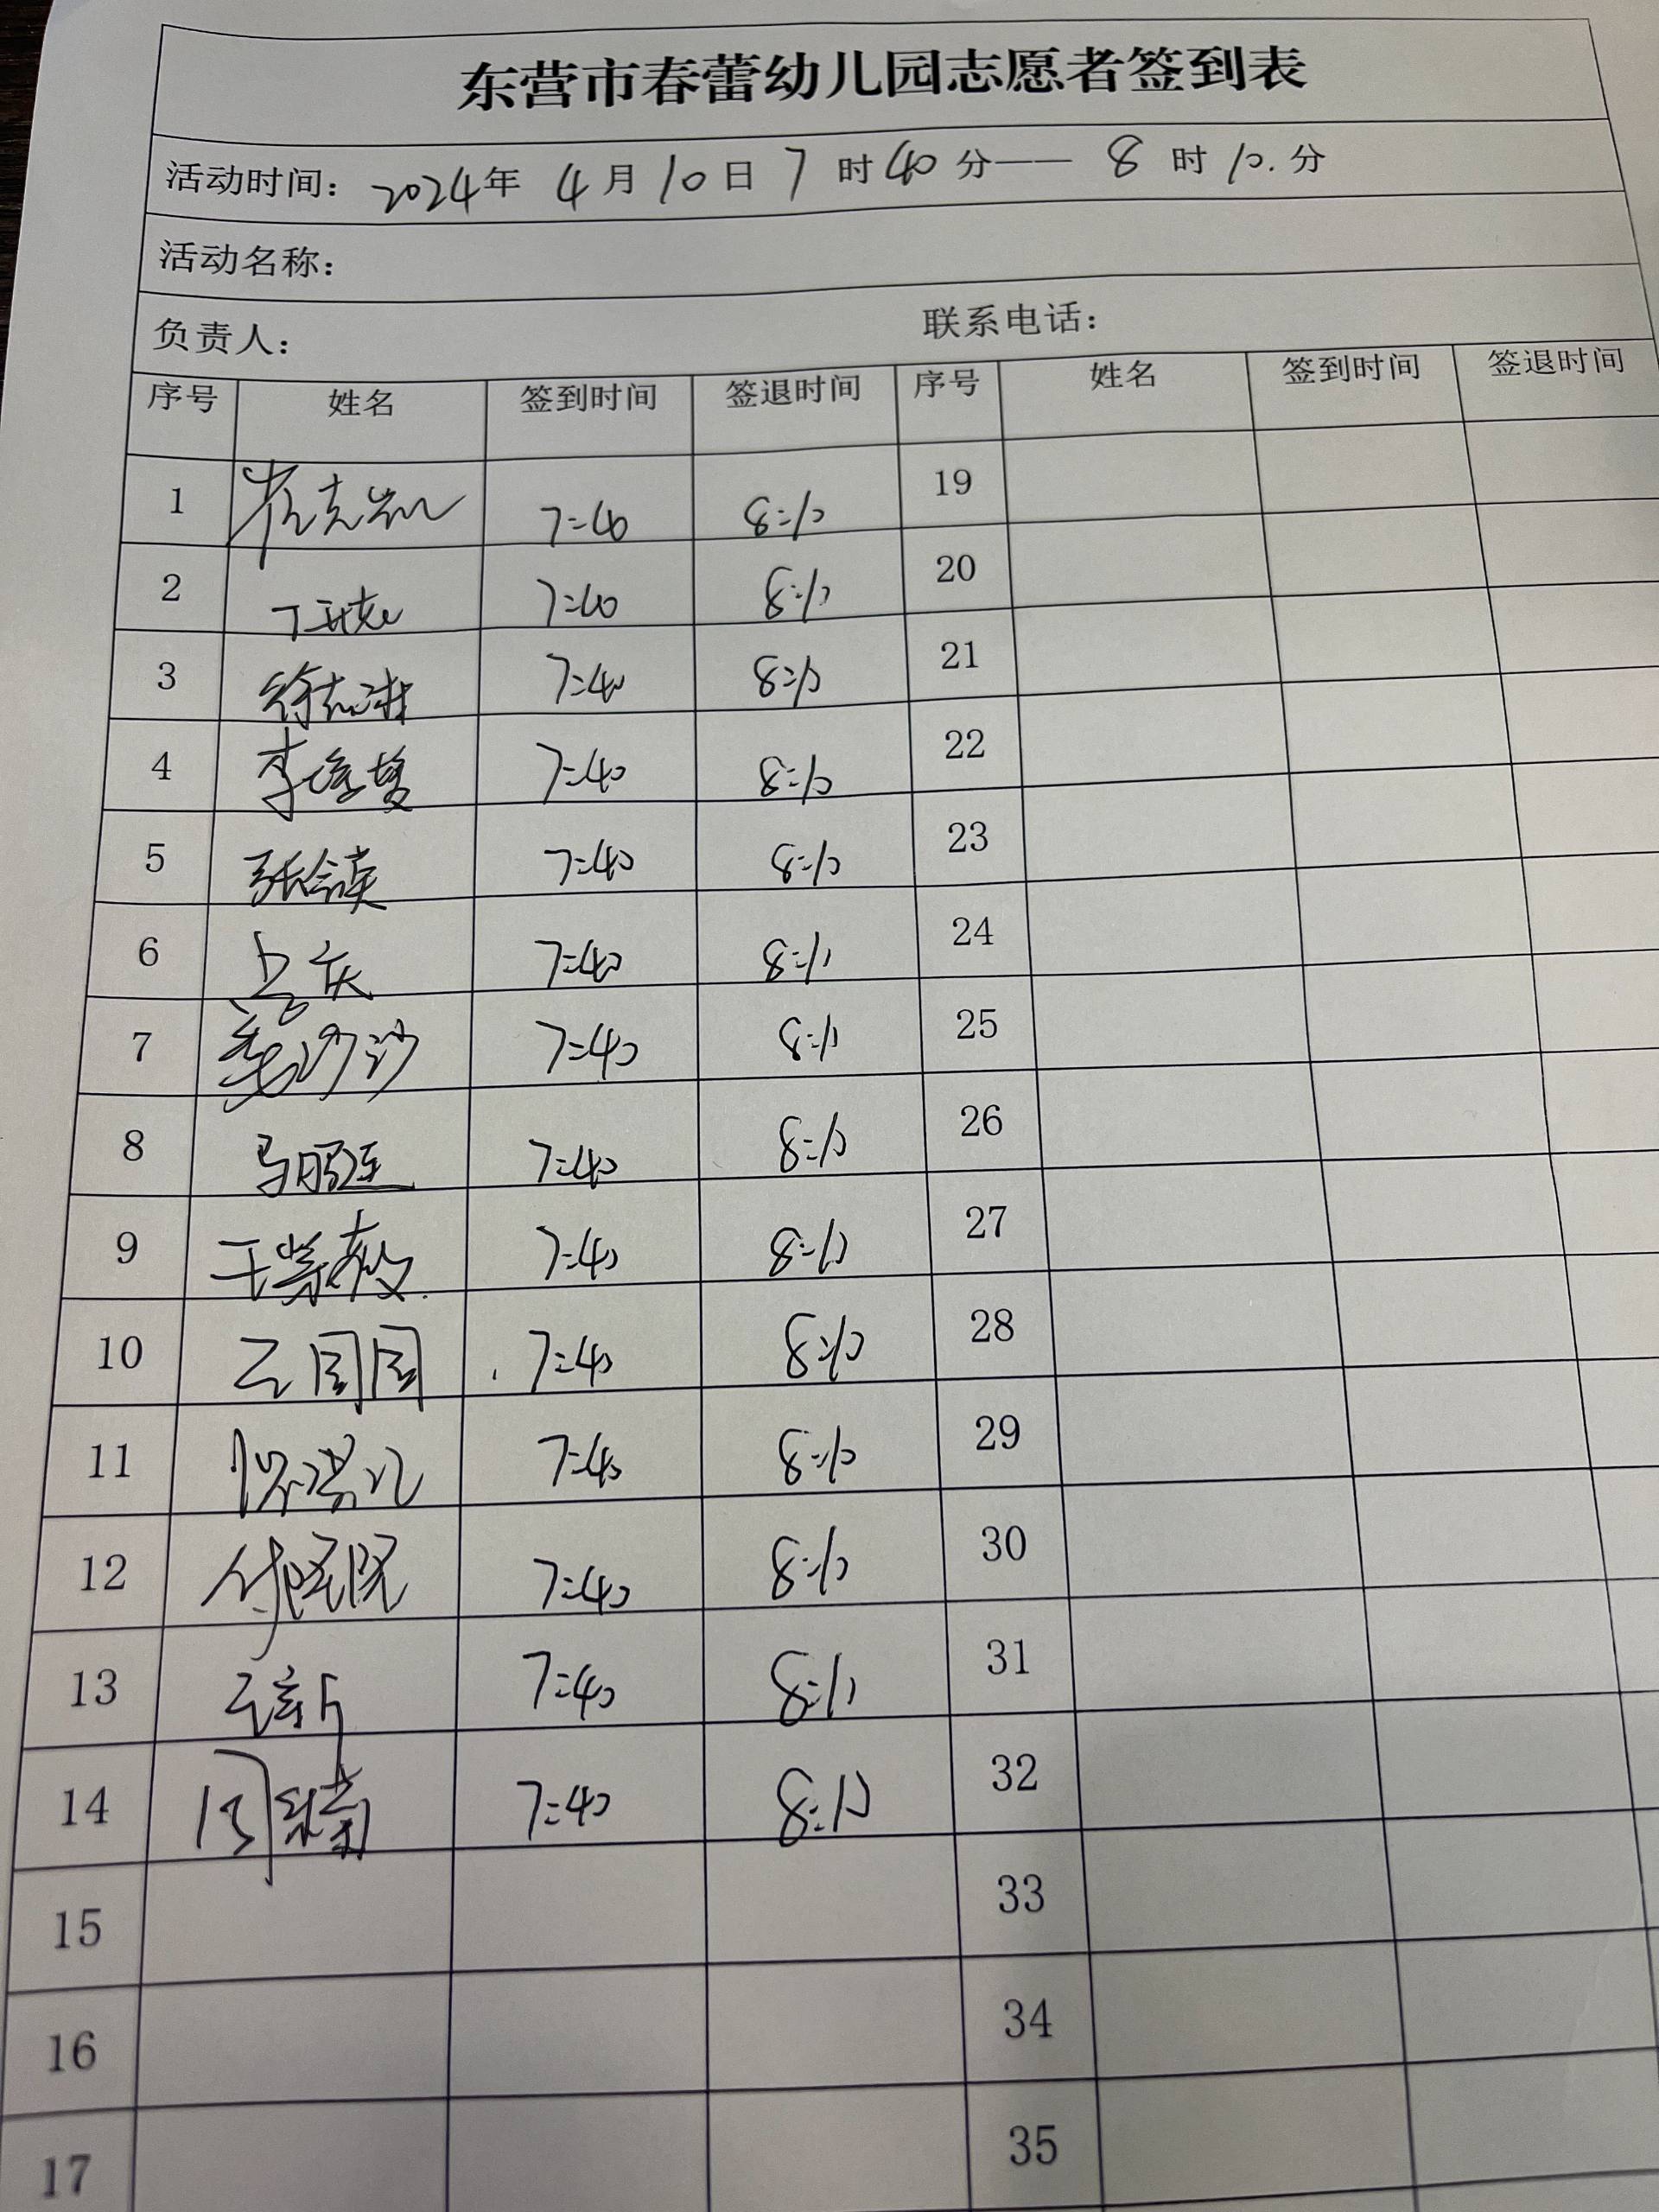 东营市春蕾幼儿园志愿者签到表
活动时间: 2024年 4月10日 7时40分—— 8时10.分
活动名称:
负责人: 联系电话:
序号 姓名 签到时间 签退时间 序号 姓名 签到时间 签退时间
1 7:40 8:10 19
2 7:40 8:10 20
3 7:40 8:10 21
4 李 7:40 8:10 22
5 张 7:40 8:10 23
6 7:40 8:10 24
7 沙沙 7:40 8:10 25
8 马 7:40 8:10 26
9 7:40 8:10 27
10 王周周 7:40 8:10 28
11 7:40 8:10 29
12 7:40 8:10 30
13 王新 7:40 8:10 31
14 周 7:40 8:10 32
15 33
16 34
17 35